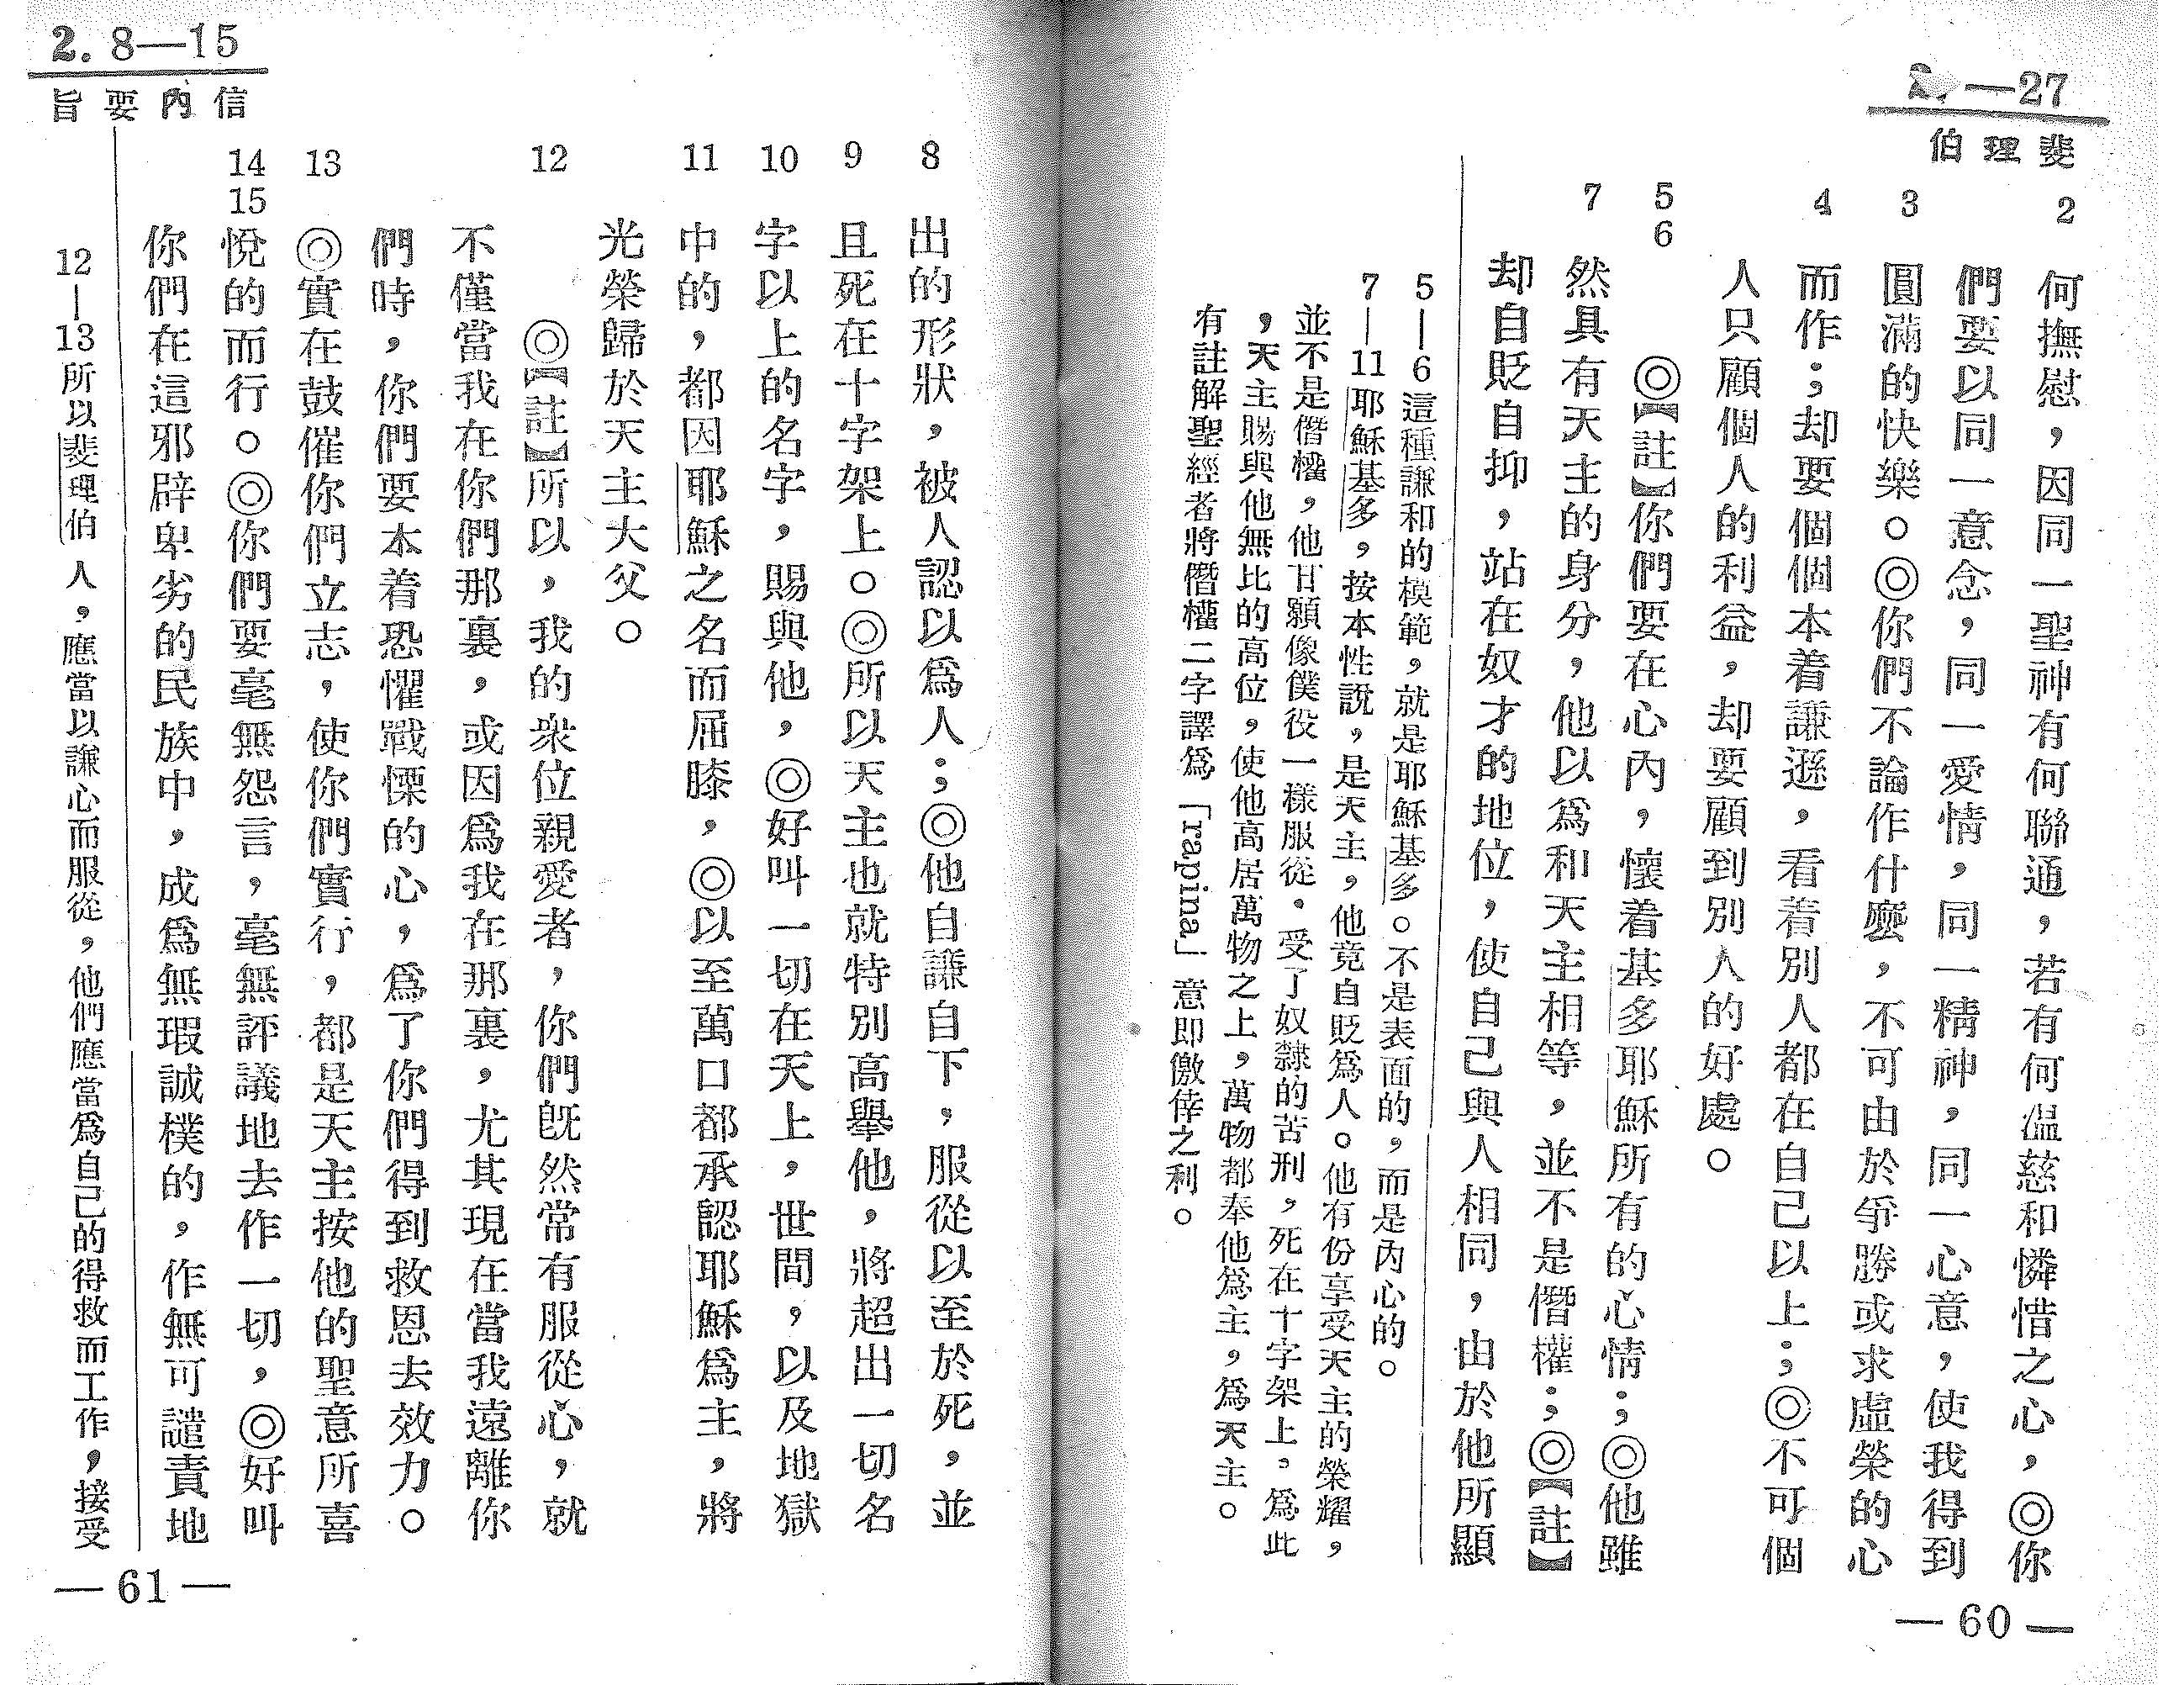 2.—27
斐理伯
2
何撫慰，因同一聖神有何聯通，若有何温慈和憐惜之心，◎你
3
們要以同一意念，同一愛情，同一精神，同一心意，使我得到
圓滿的快樂。◎你們不論作什麼，不可由於爭勝或求虛榮的心
4
而作；却要個個本着謙遜，看着別人都在自己以上；◎不可個
人只顧個人的利益，却要顧到別人的好處。
5
6
◎【註】你們要在心內，懷着基多耶穌所有的心情；◎他雖
7
然具有天主的身分，他以爲和天主相等，並不是僭權；◎【註】
却自貶自抑，站在奴才的地位，使自己與人相同，由於他所顯
5—6這種謙和的模範，就是耶穌基多。不是表面的，而是內心的。
7—11耶穌基多，按本性說，是天主，他竟自貶爲人。他有份享受天主的榮耀，
並不是僭權，他甘願像僕役一樣服從，受了奴隸的苦刑，死在十字架上。爲此
，天主賜與他無比的高位，使他高居萬物之上，萬物都奉他爲主，爲天主。
有註解聖經者將僭權二字譯爲「rapina」意即儌倖之利。
—60—
2. 8—15
信內要旨
8
出的形狀，被人認以爲人；◎他自謙自下，服從以至於死，並
9
且死在十字架上。◎所以天主也就特別高舉他，將超出一切名
10
字以上的名字，賜與他，◎好叫一切在天上，世間，以及地獄
11
中的，都因耶穌之名而屈膝，◎以至萬口都承認耶穌爲主，將
光榮歸於天主大父。
12
◎【註】所以，我的衆位親愛者，你們旣然常有服從心，就
不僅當我在你們那裏，或因爲我在那裏，尤其現在當我遠離你
們時，你們要本着恐懼戰慄的心，爲了你們得到救恩去效力。
13
◎實在鼓催你們立志，使你們實行，都是天主按他的聖意所喜
14
15
悅的而行。◎你們要毫無怨言，毫無評議地去作一切，◎好叫
你們在這邪辟卑劣的民族中，成爲無瑕誠樸的，作無可譴責地
12—13所以斐理伯人，應當以謙心而服從，他們應當爲自己的得救而工作，接受
—61—